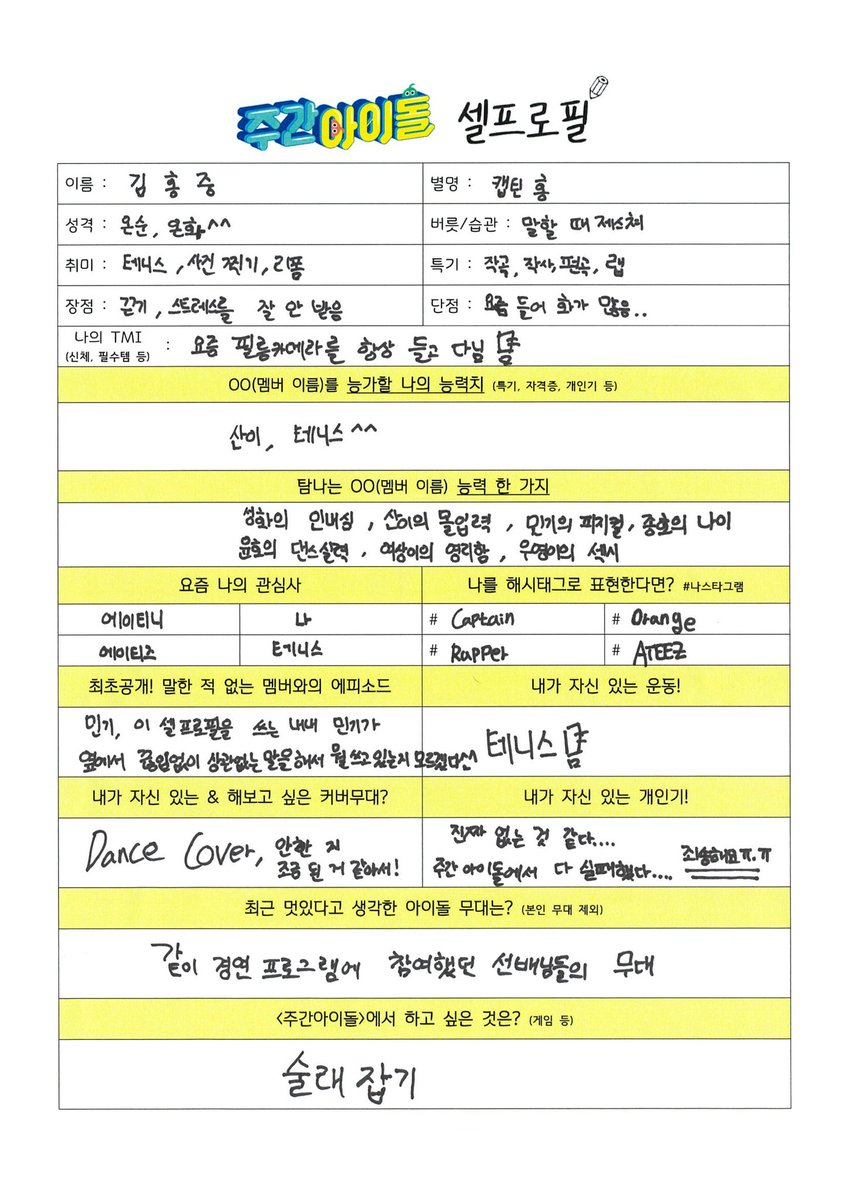 주간아이돌 셀프로필
이름 : 김홍중 별명 : 캡틴 홍
성격 : 온순, 온화^^ 버릇/습관 : 말할 때 제스처
취미 : 테니스, 사진 찍기, 리폼 특기 : 작곡, 작사, 편곡, 랩
장점 : 끈기, 스트레스를 잘 안 받음 단점 : 요즘 들어 화가 많음..
나의 TMI
(신체, 필수템 등) : 요즘 필름카메라를 항상 들고 다님
OO(멤버 이름)를 능가할 나의 능력치 (특기, 자격증, 개인기 등)
산이, 테니스^^
탐나는 OO(멤버 이름) 능력 한 가지
성화의 인내심, 산이의 몰입력, 민기의 피지컬, 종호의 나이
윤호의 댄스실력, 여상이의 영리함, 우영이의 섹시
요즘 나의 관심사 나를 해시태그로 표현한다면? #나스타그램
에이티니 나 # Captain # Orange
에이티즈 테니스 # Rapper # ATEEZ
최초공개! 말한 적 없는 멤버와의 에피소드 내가 자신 있는 운동!
민기, 이 셀프로필을 쓰는 내내 민기가
옆에서 끊임없이 상관없는 말을 해서 뭘 쓰고 있는지 모르겠다^^ 테니스
내가 자신 있는 & 해보고 싶은 커버무대? 내가 자신 있는 개인기!
Dance Cover, 안한 지
조금 된 거 같아서!
진짜 없는 것 같다....
주간 아이돌에서 다 실패했다.... 죄송해요ㅠ.ㅠ
최근 멋있다고 생각한 아이돌 무대는? (본인 무대 제외)
같이 경연 프로그램에 참여했던 선배님들의 무대
<주간아이돌>에서 하고 싶은 것은? (게임 등)
술래잡기